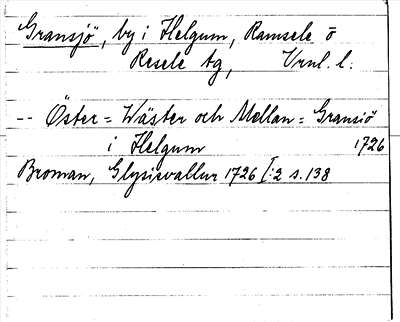 Gransjö, by i Helgum, Ramsele o
Resele tg, Vrnl. l:
-- Öster= Wäster och Mellan= Gransiö
i Helgum 1726
Broman, Glysisvallur 1726 I:2 s. 138